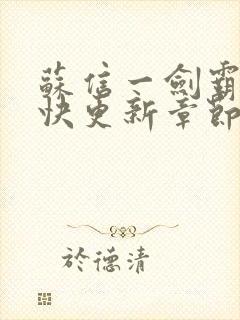 蘇信一劍霸
快更新章節
於德清